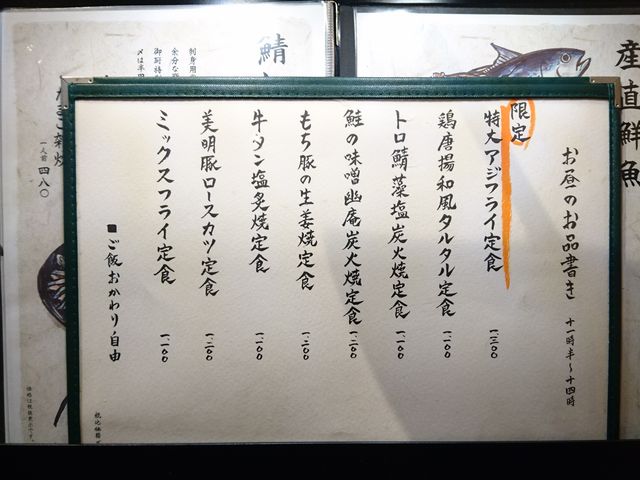 お昼のお品書き 十一時半〜十四時
限定
特大アジフライ定食 一、三〇〇
鶏唐揚和風タルタル定食 一、一〇〇
トロ鯖藻塩炭火焼定食 一、一〇〇
鮭の味噌幽庵炭火焼定食 一、二〇〇
もち豚の生姜焼定食 一、二〇〇
牛タン塩炙焼定食 一、一〇〇
美明豚ロースカツ定食 一、二〇〇
ミックスフライ定食 一、一〇〇
■ご飯おかわり自由
産直鮮魚
鯖
一人前 四八〇